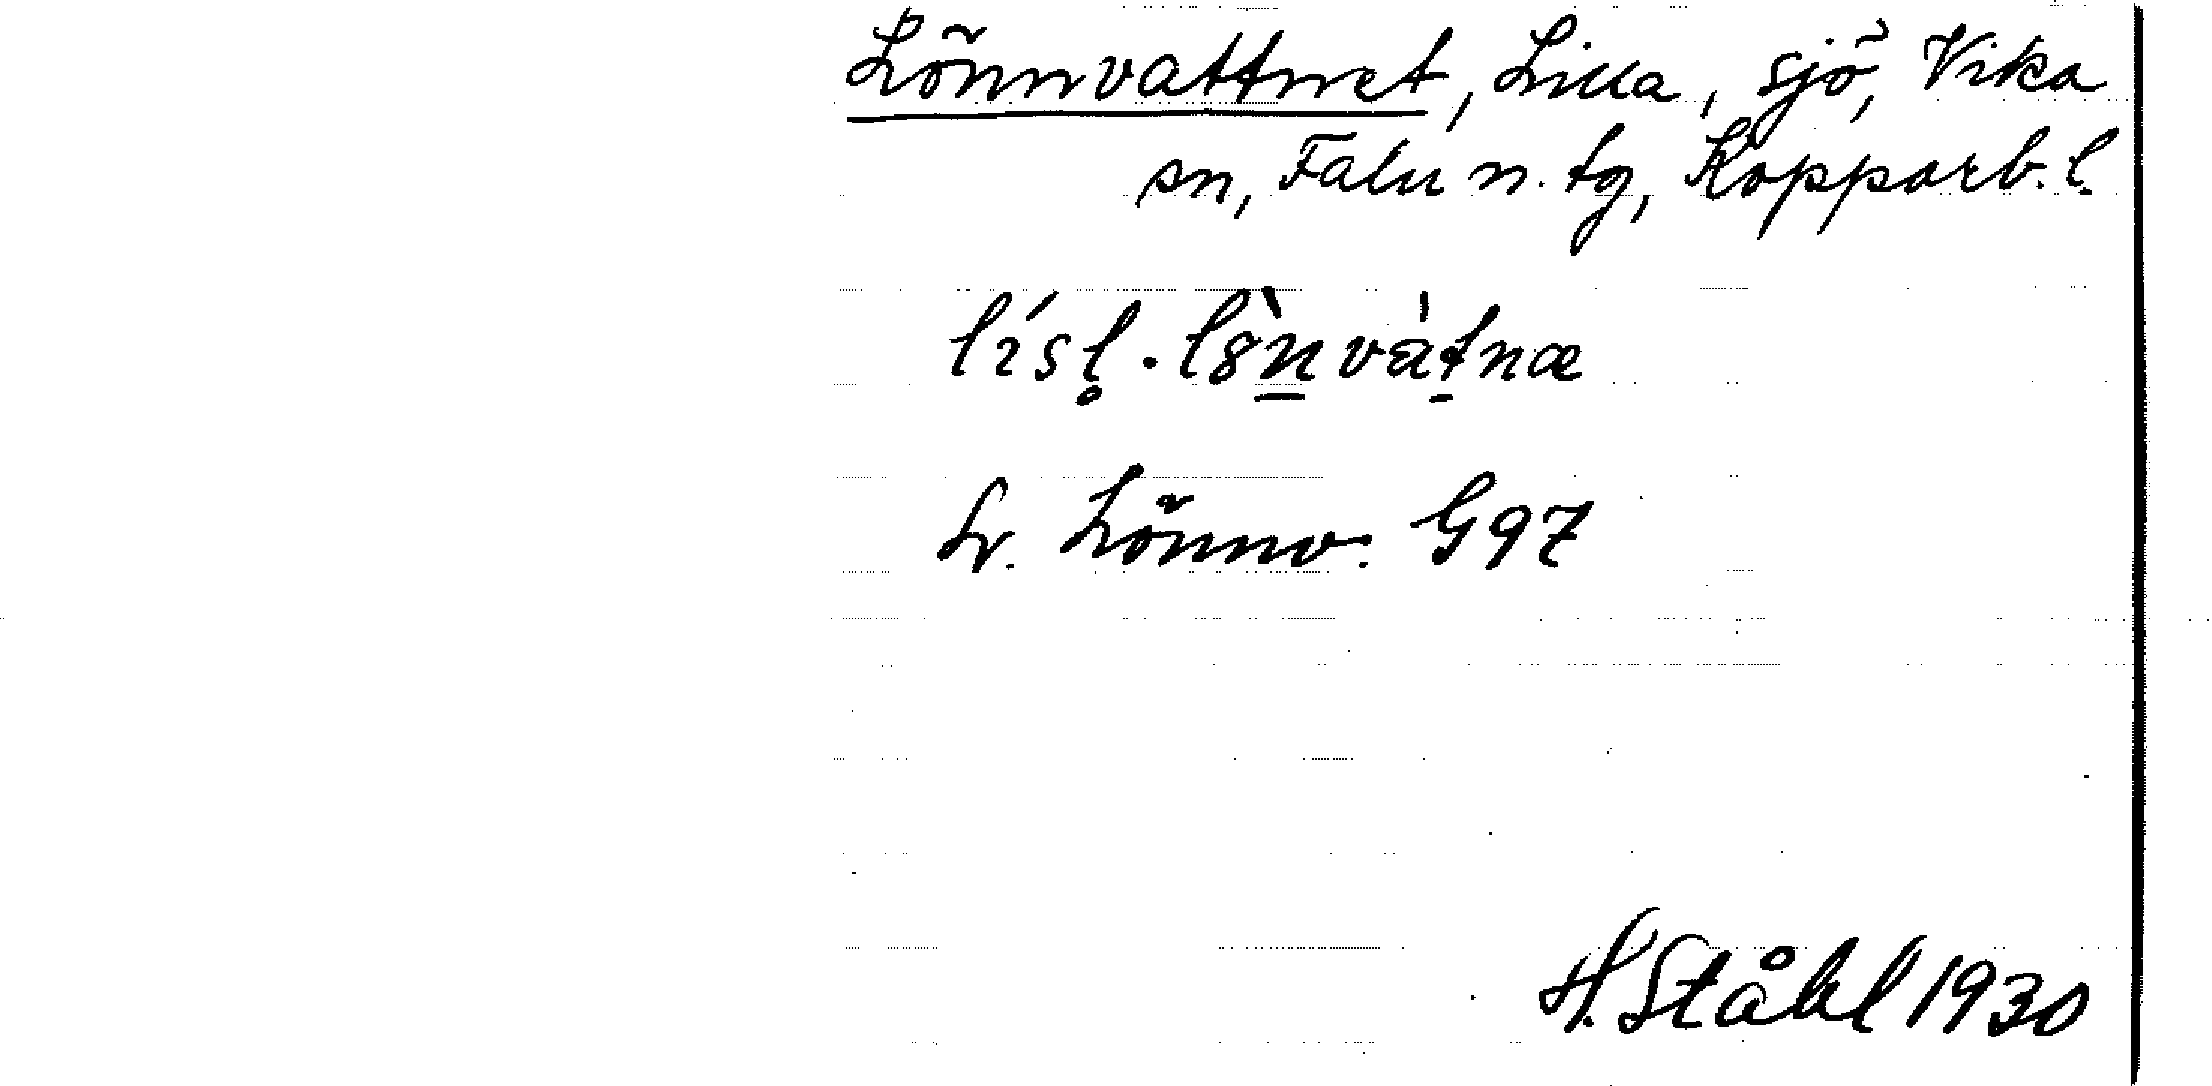 Lönnvattnet, Lilla, sjö, Vika
sn, Falu n. tg, Kopparb. l.
lísl̥. lö̀n̲vàt̲næ
L. Lönnv. G97
H. Ståhl 1930